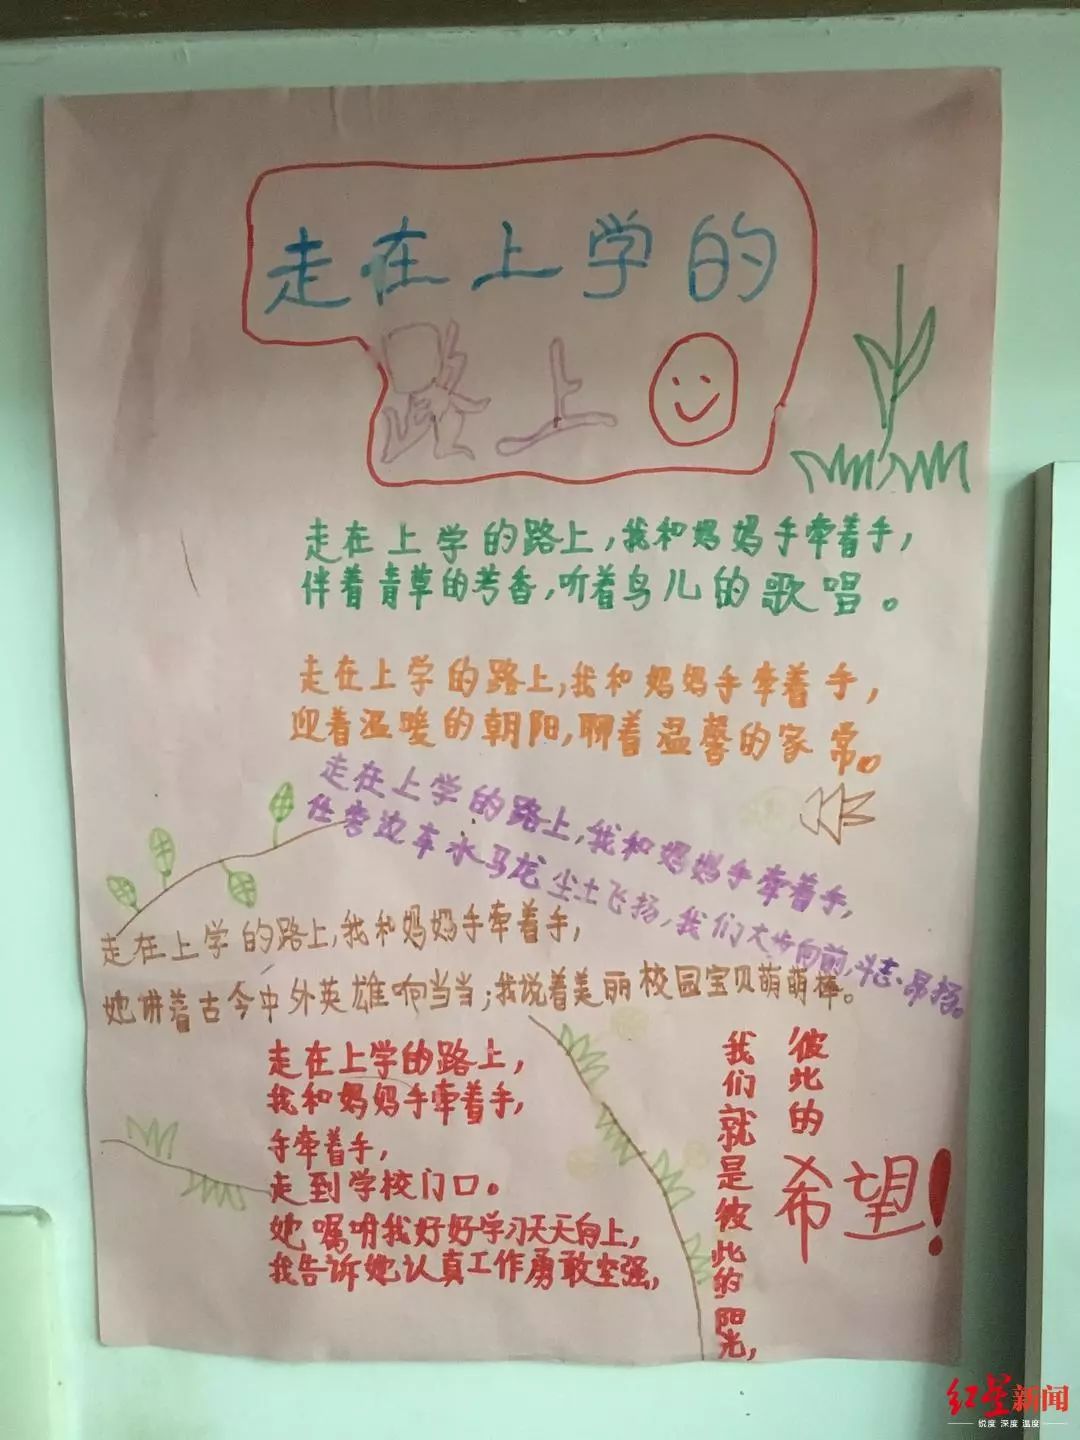 走在上学的
路上
走在上学的路上，我和妈妈手牵着手，
伴着青草的芳香，听着鸟儿的歌唱。
走在上学的路上，我和妈妈手牵着手，
迎着温暖的朝阳，聊着温馨的家常。
走在上学的路上，我和妈妈手牵着手，
任旁边车水马龙尘土飞扬，我们大步向前，斗志昂扬。
走在上学的路上，我和妈妈手牵着手，
她讲着古今中外英雄响当当；我说着美丽校园宝贝萌萌棒。
走在上学的路上，
我和妈妈手牵着手，
手牵着手，
走到学校门口。
她嘱咐我好好学习天天向上，
我告诉她认真工作勇敢坚强，
我们就是彼此的阳光，
彼此的
希望！
红星新闻
锐度 深度 温度